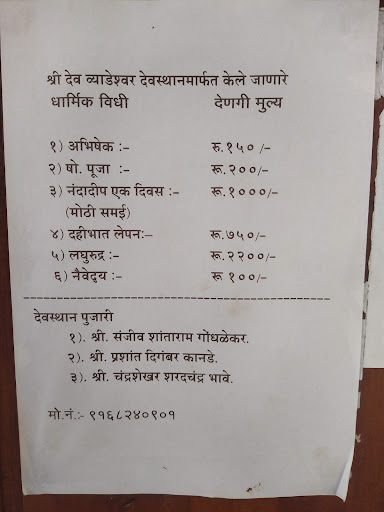 श्री देव व्याडेश्वर देवस्थानमार्फत केले जाणारे
धार्मिक विधी देणगी मुल्य
१) अभिषेक :- रु.१५० /-
२) षो. पूजा :- रू.२००/-
३) नंदादीप एक दिवस :- रू.१०००/-
(मोठी समई)
४) दहीभात लेपन:- रू.७५०/-
५) लघुरुद्र :- रू.२२००/-
६) नैवेद्य :- रू १००/-
देवस्थान पुजारी
१). श्री. संजीव शांताराम गोंधळेकर.
२). श्री. प्रशांत दिगंबर कानडे.
३). श्री. चंद्रशेखर शरदचंद्र भावे.
मो.नं.:- ९१६८२४०९०१